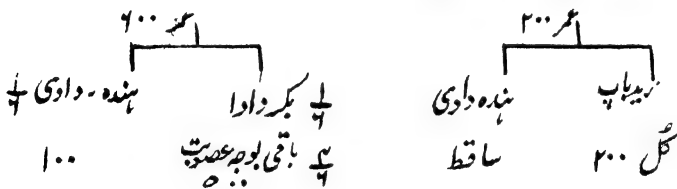 عمر ۲۰۰
زید باپ
ہندہ دادی
کُل ۲۰۰
ساقط
عمر ۶۰۰
۱/۶ بکر دادا
ہندہ۔ دادی ۱/۶
۴/۶ باقی بوجہ عصوبت
۵۰۰
۱۰۰